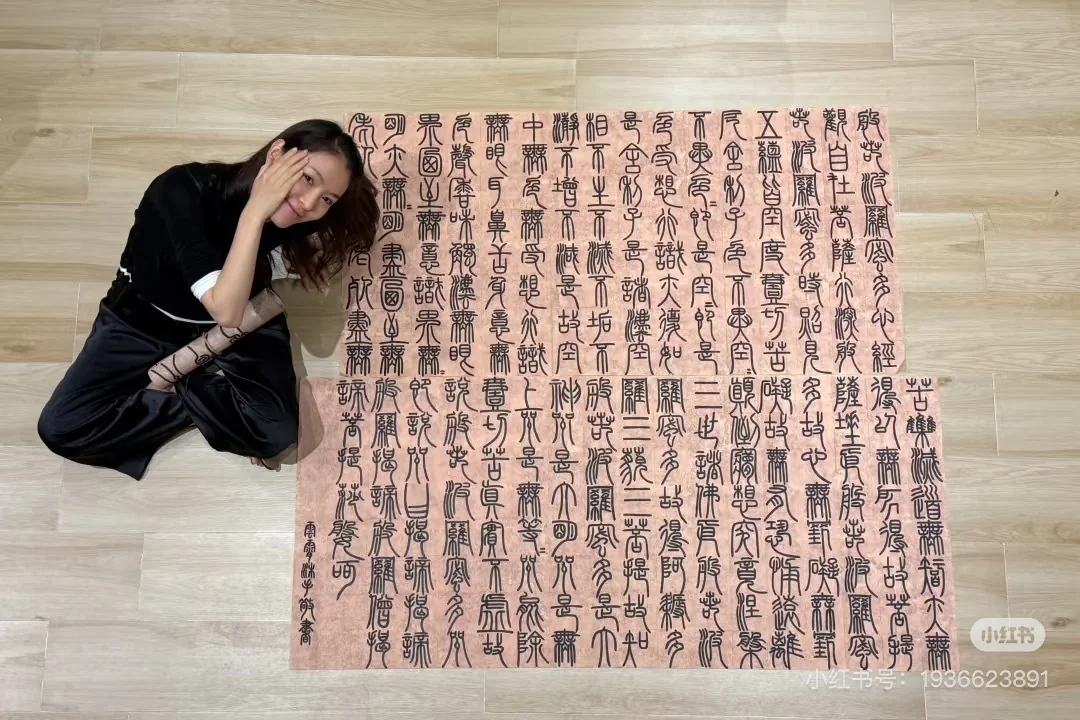 般若波羅蜜多心經
觀自在菩薩行深般
若波羅蜜多時照見
五蘊皆空度壹切苦
厄舍利子色不異空
不異色即是空即是
色受想行識亦復如
是舍利子是諸法空
相不生不滅不垢不
淨不增不減是故空
中無色無受想行識
無眼耳鼻舌身意無
色聲香味觸法無眼
界乃至無意識界無
明亦無明盡乃至無
老死盡無
苦集滅道無智亦無
得以無所得故菩提
薩埵依般若波羅蜜
多故心無罣礙無罣
礙故無有恐怖遠離
顛倒夢想究竟涅槃
三世諸佛依般若波
羅蜜多故得阿耨多
羅三藐三菩提故知
般若波羅蜜多是大
神咒是大明咒是無
上咒是無等等咒能除
壹切苦真實不虛故
說般若波羅蜜多咒
即說咒曰揭諦揭諦
般羅揭諦般羅僧揭
諦菩提莎婆訶
沐手敬書
小红书
小红书号：1936623891